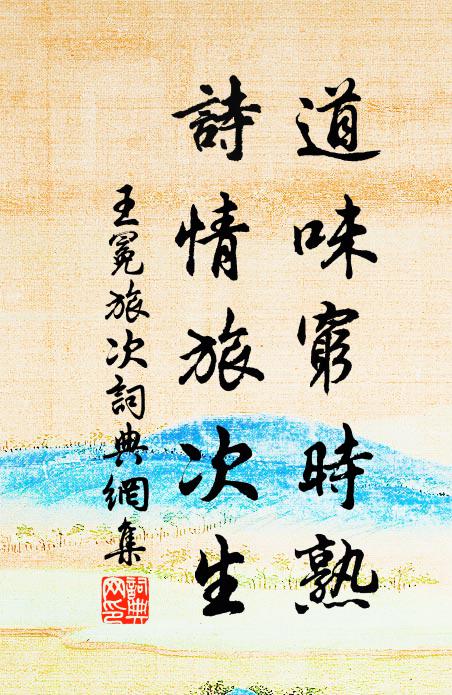 道味窮時熟
詩情旅次生
王冕旅次詞典網集